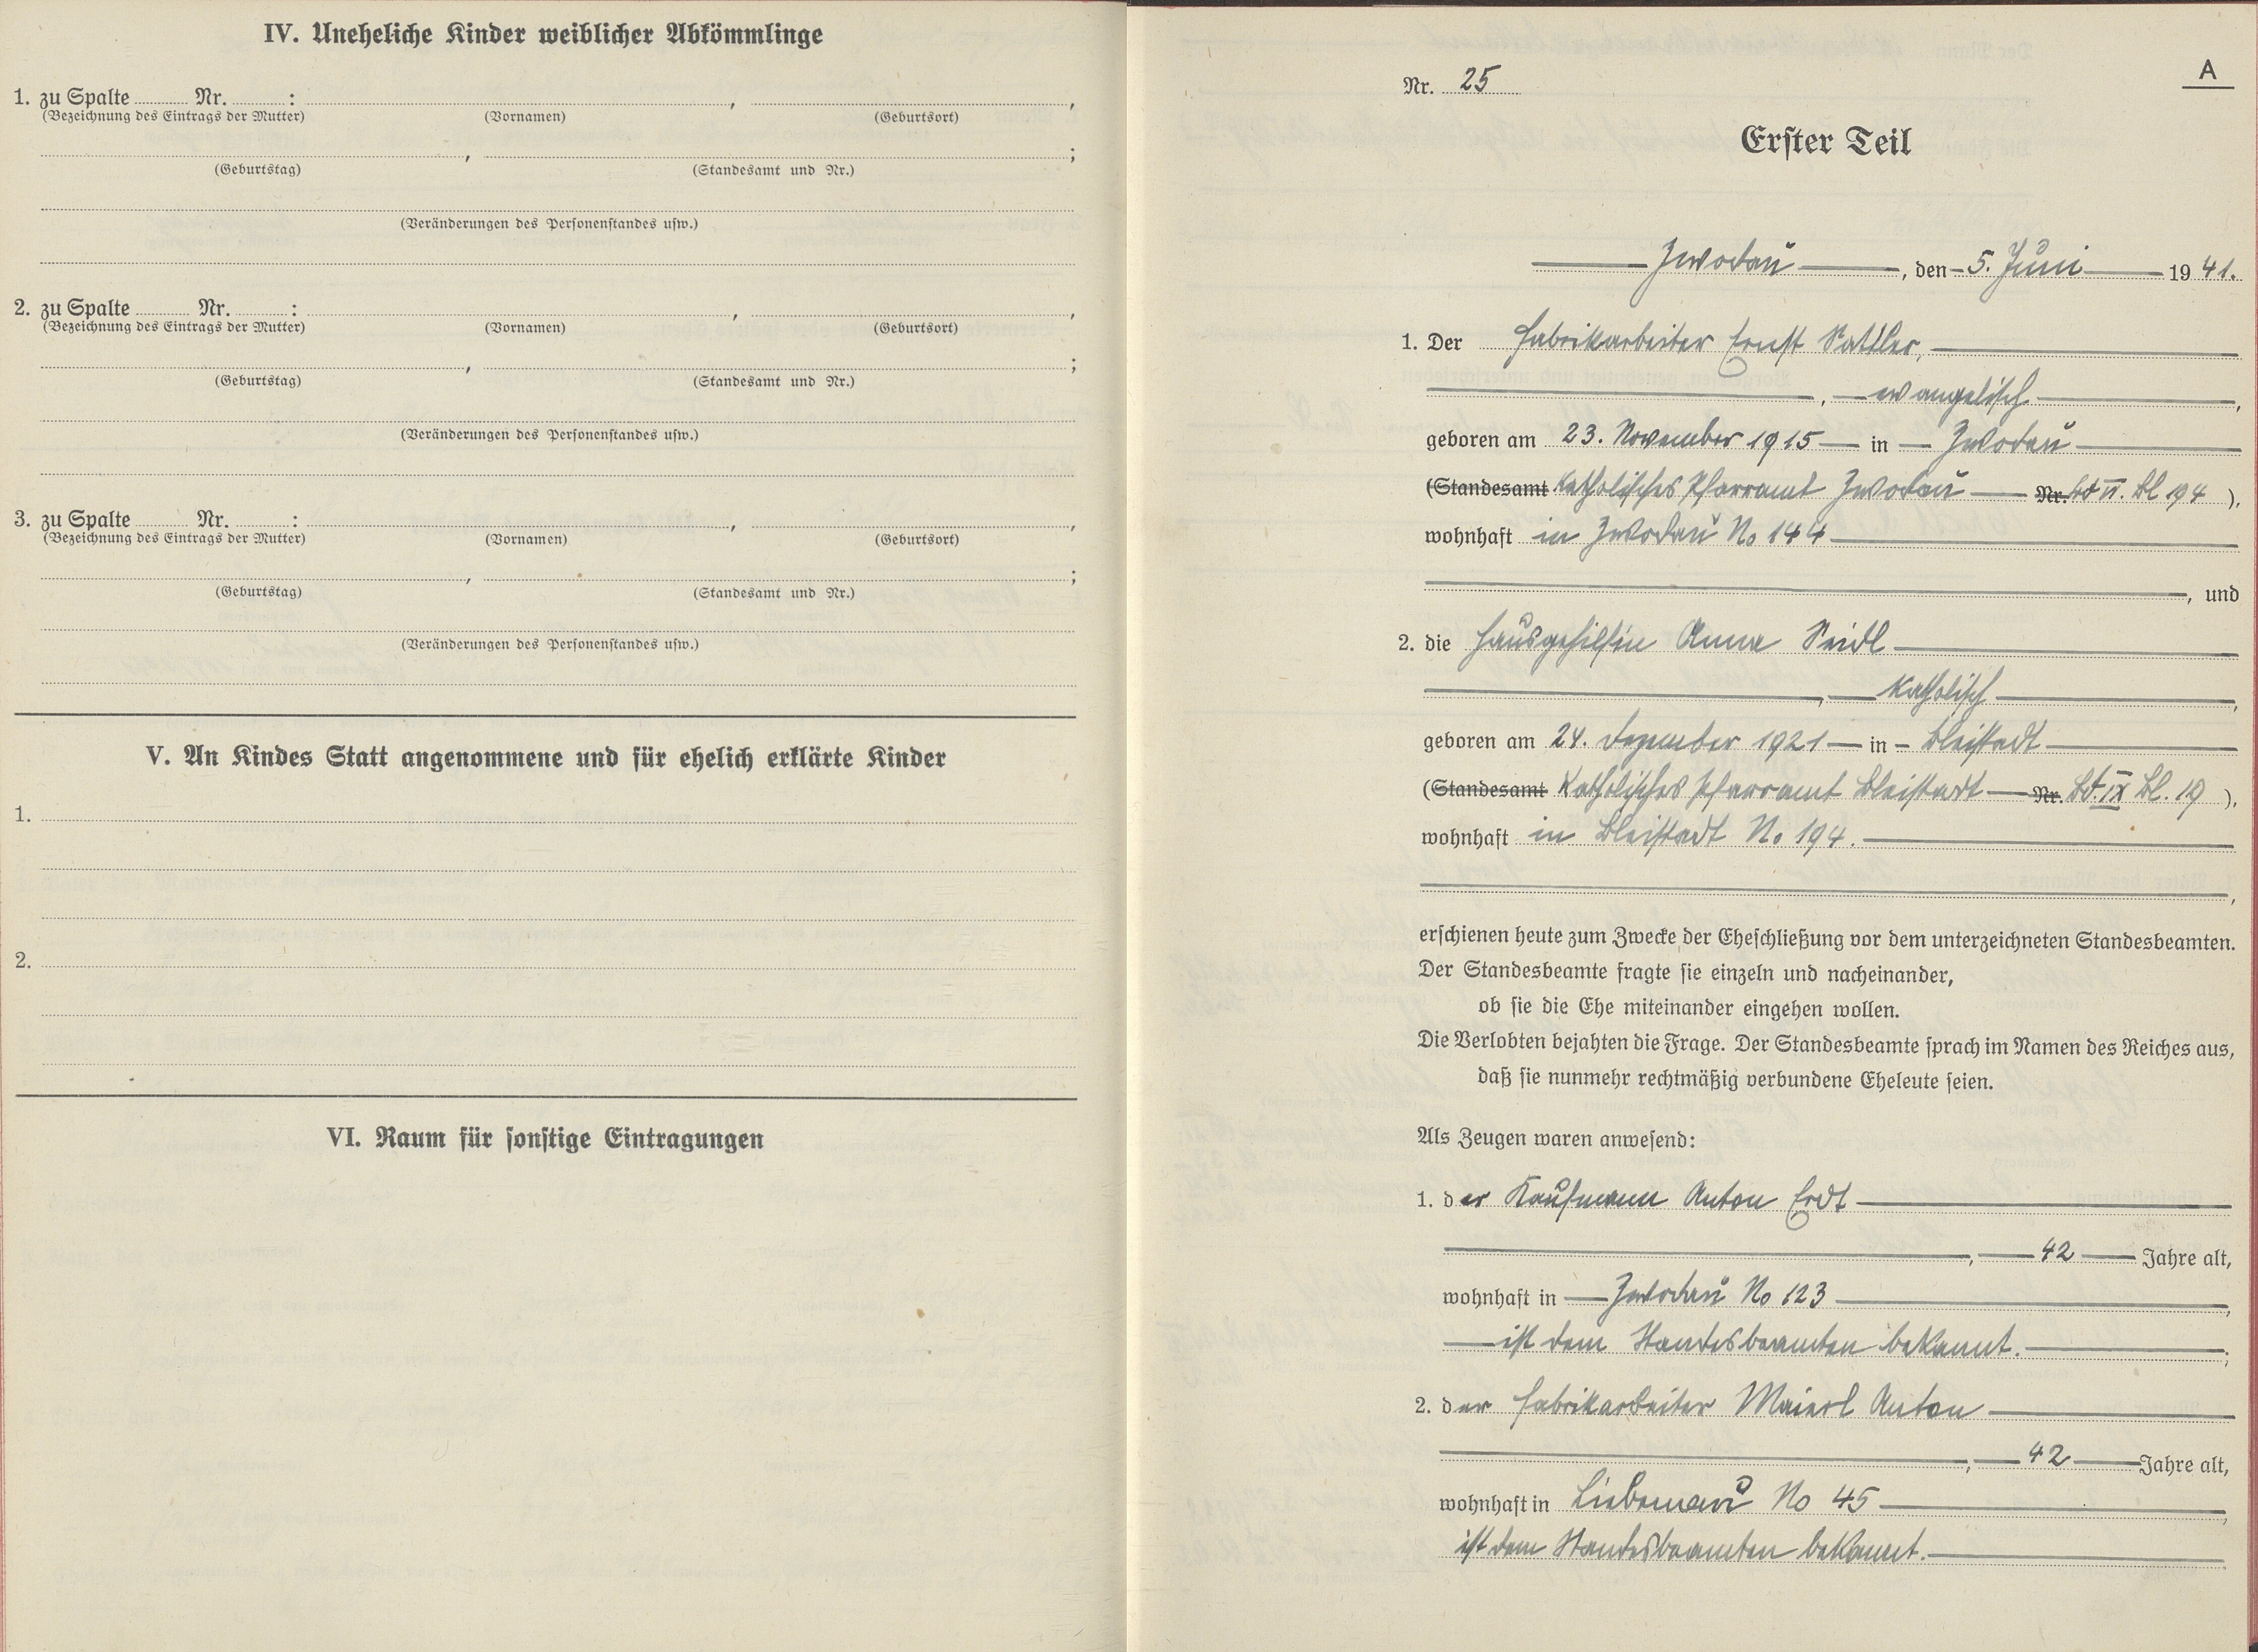 IV. Uneheliche Kinder weiblicher Abkömmlinge
1. zu Spalte Nr. : , ,
(Bezeichnung des Eintrags der Mutter) (Vornamen) (Geburtsort)
, ;
(Geburtstag) (Standesamt und Nr.)
(Veränderungen des Personenstandes usw.)
2. zu Spalte Nr. : , ,
(Bezeichnung des Eintrags der Mutter) (Vornamen) (Geburtsort)
, ;
(Geburtstag) (Standesamt und Nr.)
(Veränderungen des Personenstandes usw.)
3. zu Spalte Nr. : , ,
(Bezeichnung des Eintrags der Mutter) (Vornamen) (Geburtsort)
, ;
(Geburtstag) (Standesamt und Nr.)
(Veränderungen des Personenstandes usw.)
V. An Kindes Statt angenommene und für ehelich erklärte Kinder
1.
2.
VI. Raum für sonstige Eintragungen
A
Nr. 25
Erster Teil
Zwodau, den 5. Juni 1941.
1. Der Fabrikarbeiter Ernst Sattler,
, evangelisch,
geboren am 23. November 1915 in Zwodau
(Standesamt Katholisches Pfarramt Zwodau Nr. Bd VI. Bl 194),
wohnhaft in Zwodau No 144
, und
2. die Hausgehilfin Anna Seidl
, katholisch,
geboren am 24. Dezember 1921 in Bleistadt
(Standesamt Katholisches Pfarramt Bleistadt Nr. Bd. IX Bl. 19),
wohnhaft in Bleistadt No 194.
,
erschienen heute zum Zwecke der Eheschließung vor dem unterzeichneten Standesbeamten.
Der Standesbeamte fragte sie einzeln und nacheinander,
ob sie die Ehe miteinander eingehen wollen.
Die Verlobten bejahten die Frage. Der Standesbeamte sprach im Namen des Reiches aus,
daß sie nunmehr rechtmäßig verbundene Eheleute seien.
Als Zeugen waren anwesend:
1. der Kaufmann Anton Erdt
, 42 Jahre alt,
wohnhaft in Zwodau No 123,
ist dem Standesbeamten bekannt.;
2. der Fabrikarbeiter Maierl Anton
, 42 Jahre alt,
wohnhaft in Liebenau No 45,
ist dem Standesbeamten bekannt.